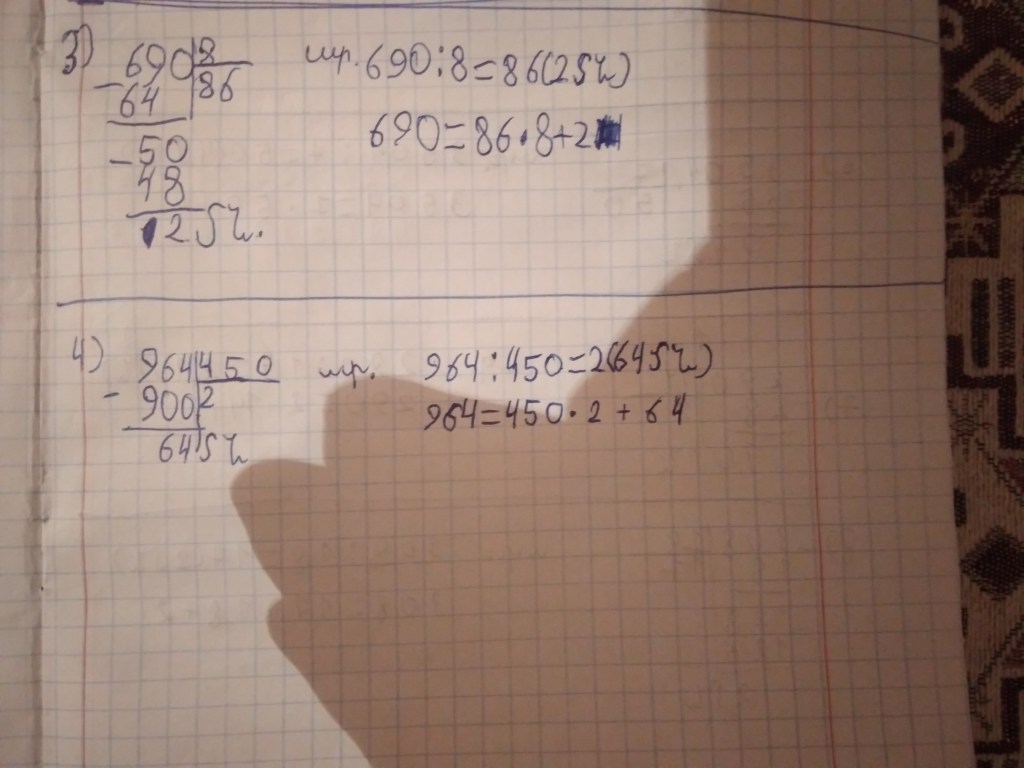 3) 690 8
- 64 86
- 50
48
2 մն.
690:8=86(2մն)
690=86·8+2
4) 964 450
- 900 2
64 մն
964:450=2(64մն)
964=450·2+64